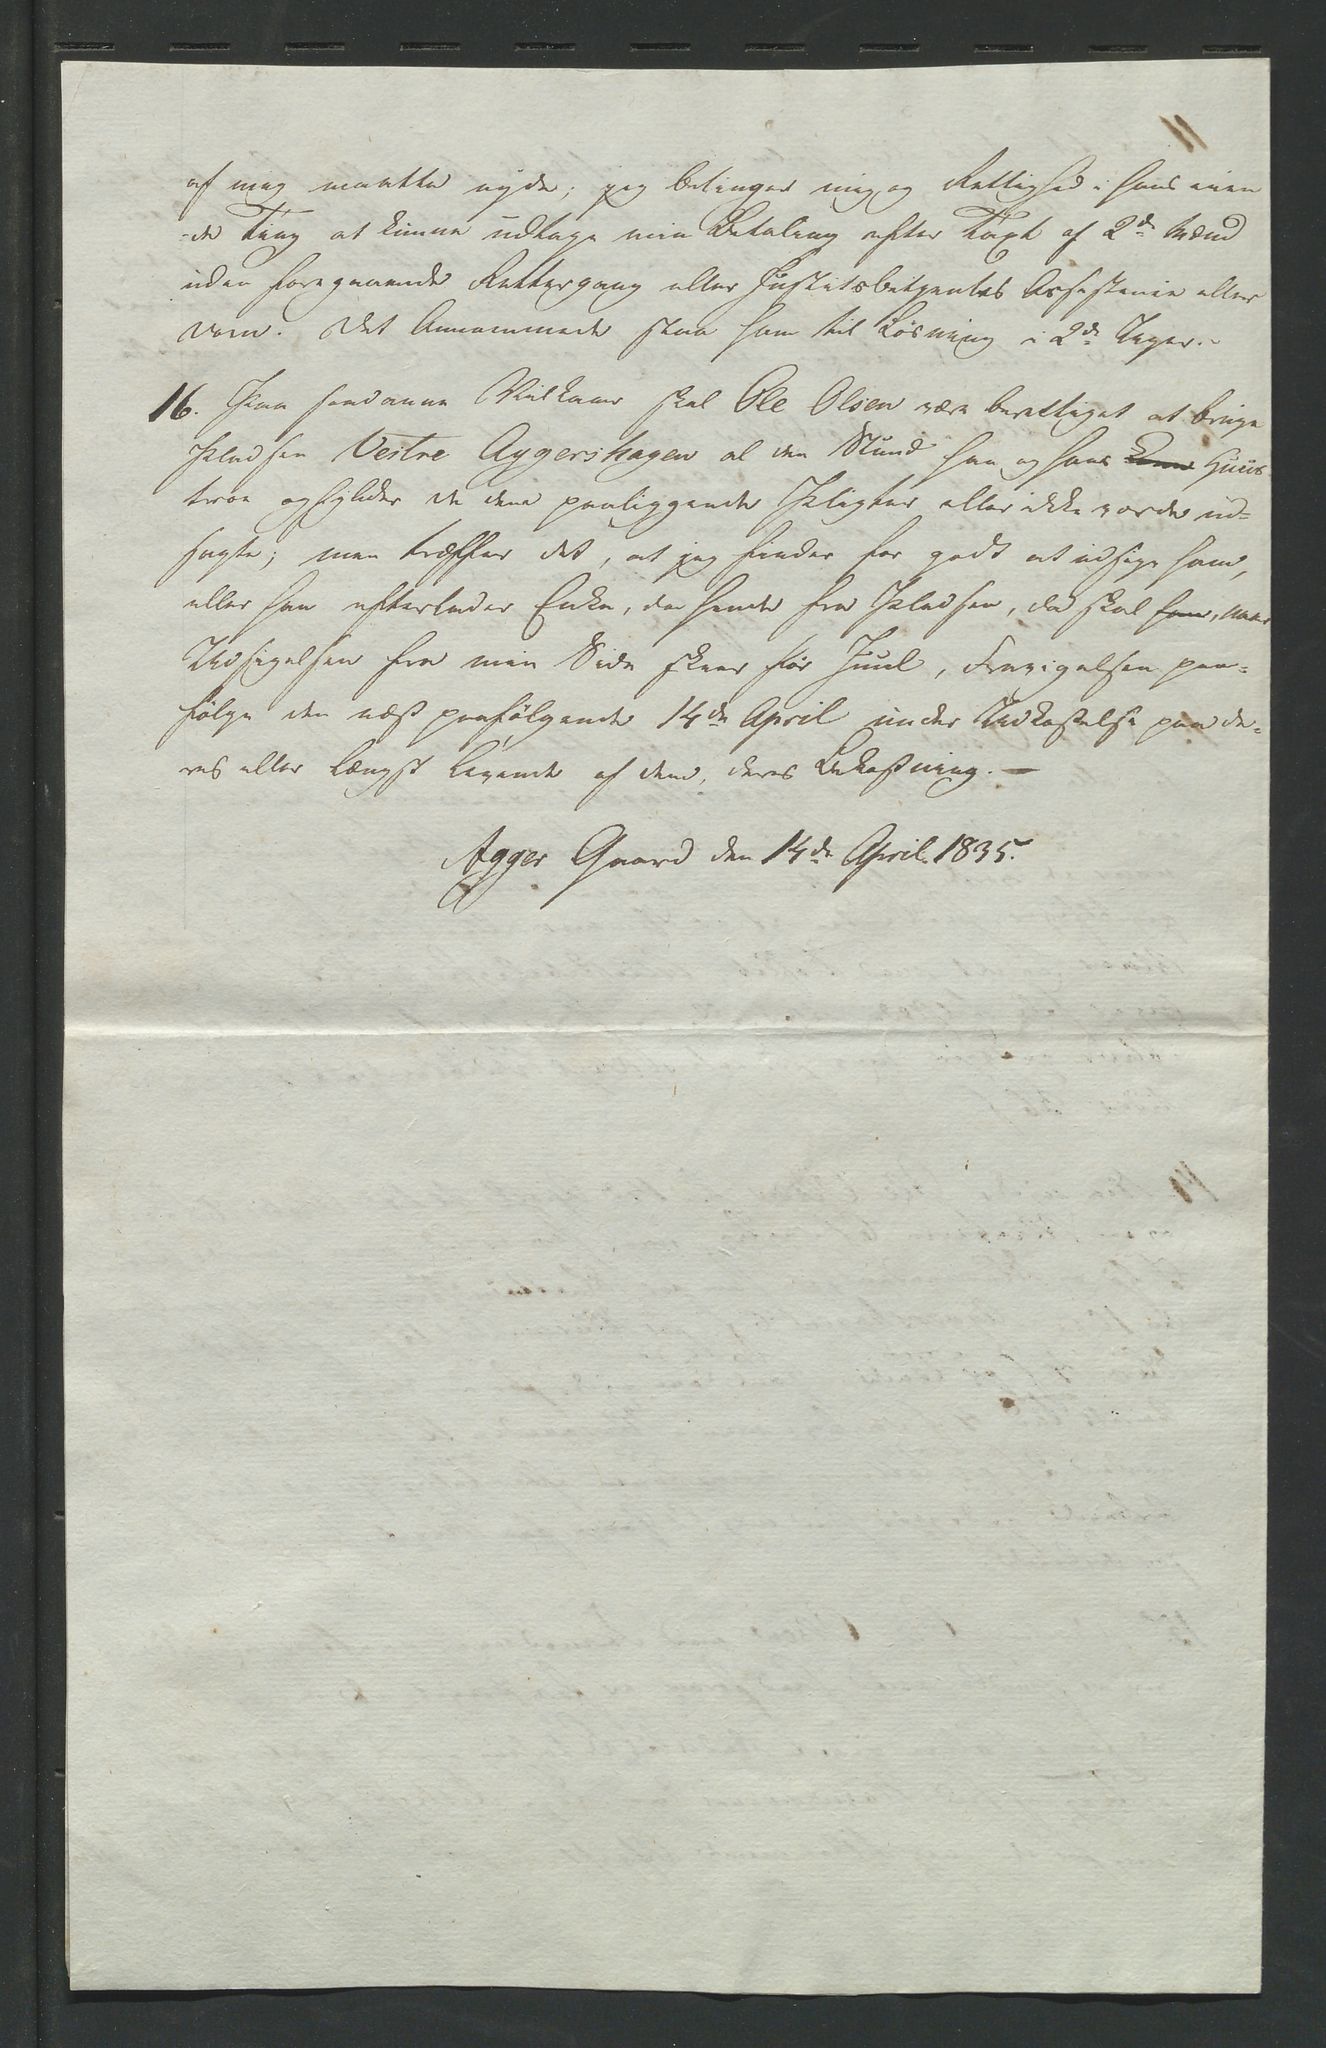 af mig maatte nyde; jeg betinger mig og Rettighed i hans eien
-de Ting at kunne udtage min Betaling efter Taxt af 2de Mænd
uden foregaaende Rettergang eller Justitsbetjentes Assistenie eller
Dom. Det Annammede staa ham til Løsning i 2de Dager.-
16. Paa saadanne Vilkaar skal Ole Olsen være berettiget at bruge
Pladsen Vestre Aggershagen al den Stund han og hans Kone Huus
troe opfylder de dem paaliggende Pligter eller ikke vorde ud=
sagte; men træffer det, at jeg finder for godt at udsige ham,
eller han efterlader Enke, da hende fra Pladsen, da skal ham, naar
Udsigelsen fra min Side skeer før Juul, Fravigelsen paa=
følge den næst paafølgende 14de April under Udkastelse paa de=
res eller længst levende af dem, deres Bekostning. —
Agger Gaard den 14de April 1835.